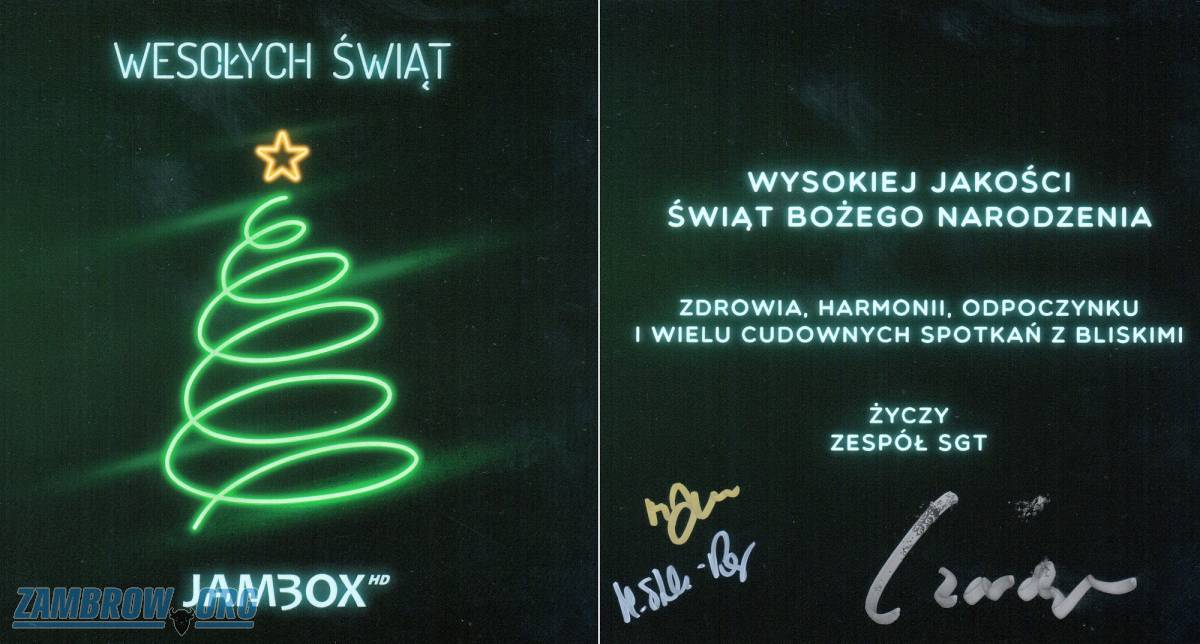 WESOŁYCH ŚWIĄT
JAMBOX HD
ZAMBROW.ORG
WYSOKIEJ JAKOŚCI
ŚWIĄT BOŻEGO NARODZENIA
ZDROWIA, HARMONII, ODPOCZYNKU
I WIELU CUDOWNYCH SPOTKAŃ Z BLISKIMI
ŻYCZY
ZESPÓŁ SGT